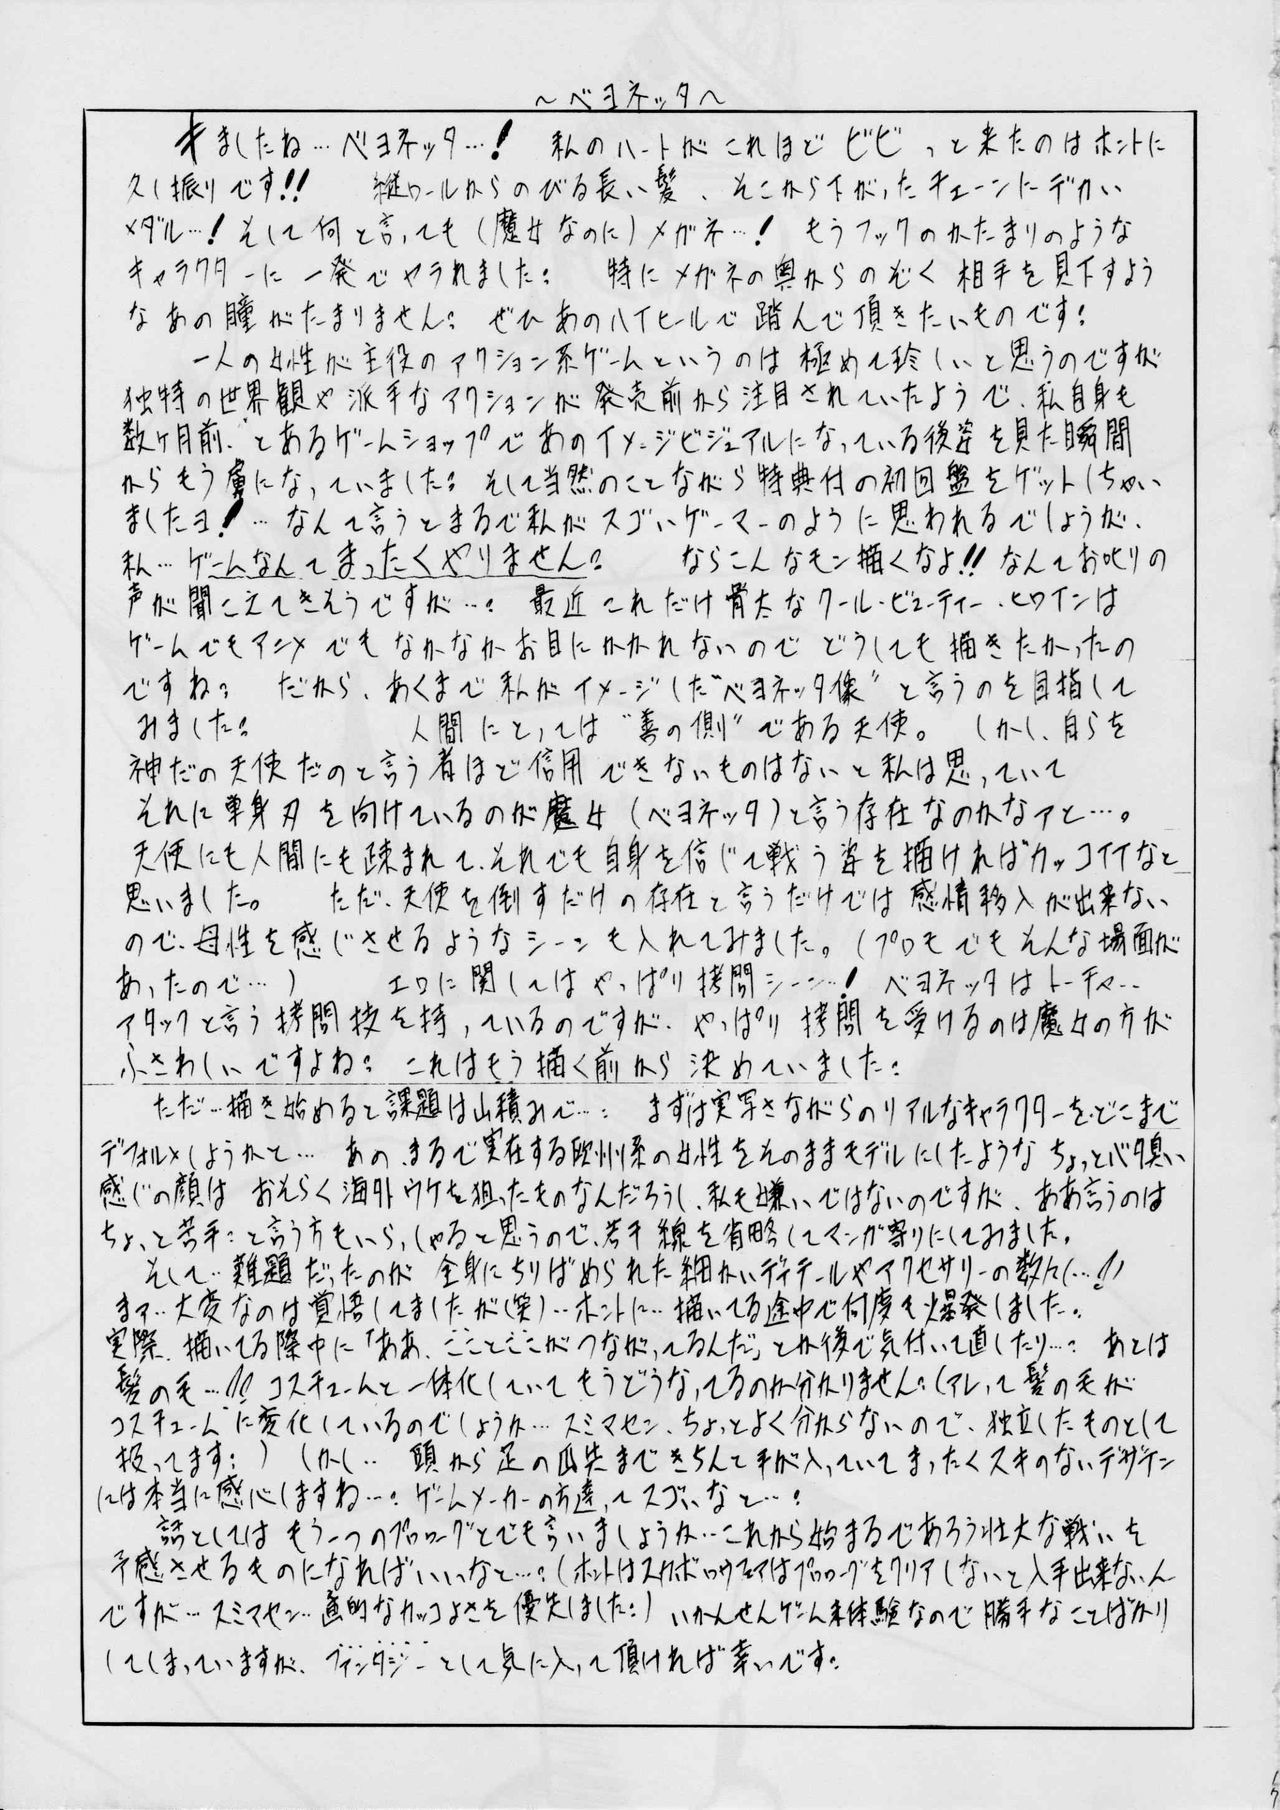 ～ベヨネッタ～
キましたね…ベヨネッタ…! 私のハートがこれほどビビっと来たのはホントに
久し振りです!! 縦ロールからのびる長い髪、そこから下がったチェーンにデカい
メダル…! そして何と言っても(魔女なのに)メガネ…! もうフックのかたまりのような
キャラクターに一発でヤラれました: 特にメガネの奥からのぞく相手を見下すよう
なあの瞳がたまりません: ぜひあのハイヒールで踏んで頂きたいものです:
一人の女性が主役のアクション系ゲームというのは極めて珍しいと思うのですが
独特の世界観や派手なアクションが発売前から注目されていたようで、私自身も
数ヶ月前、とあるゲームショップであのイメージビジュアルになっている後姿を見た瞬間
からもう虜になっていました: そして当然のことながら特典付の初回盤をゲットしちゃい
ましたヨ!…なんて言うとまるで私がスゴいゲーマーのように思われるでしょうが、
私…ゲームなんてまったくやりません: ならこんなモン描くなよ!! なんてお叱りの
声が聞こえてきそうですが…: 最近これだけ骨太なクール・ビューティー・ヒロインは
ゲームでもアニメでもなかなかお目にかかれないのでどうしても描きたかったの
ですね: だから、あくまで私がイメージした"ベヨネッタ像"と言うのを目指して
みました: 人間にとっては"善の側"である天使。 しかし、自らを
神だの天使だのと言う者ほど信用できないものはないと私は思っていて
それに単身刃を向けているのが魔女(ベヨネッタ)と言う存在なのかなァと…。
天使にも人間にも疎まれて、それでも自身を信じて戦う姿を描ければカッコイイなと
思いました。 ただ、天使を倒すだけの存在と言うだけでは感情移入が出来ない
ので、母性を感じさせるようなシーンも入れてみました。(プロモでもそんな場面が
あったので…) エロに関してはやっぱり拷問シーン…! ベヨネッタはトーチャー
アタックと言う拷問技を持っているのですが、やっぱり拷問を受けるのは魔女の方が
ふさわしいですよね: これはもう描く前から決めていました:
ただ…描き始めると課題は山積みで…: まずは実写さながらのリアルなキャラクターを、どこまで
デフォルメしようかと… あの、まるで実在する欧州系の女性をそのままモデルにしたようなちょっとバタ臭い
感じの顔はおそらく海外ウケを狙ったものなんだろうし、私も嫌いではないのですが、ああ言うのは
ちょっと苦手:と言う方もいらっしゃると思うので、若干線を省略してマンガ寄りにしてみました。
そして…難題だったのが全身にちりばめられた細かいディテールやアクセサリーの数々…!!
まァ…大変なのは覚悟してましたが(笑)…ホントに…描いてる途中で何度も爆発しました:
実際、描いてる際中に「ああ、こことここがつながってるんだ」とか後で気付いて直したり…: あとは
髪の毛…!! コスチュームと一体化していてもうどうなってるのか分かりません:(アレって髪の毛が
コスチュームに変化しているのでしょうか…スミマセン、ちょっとよく分からないので、独立したものとして
扱ってます:) しかし… 頭から足の爪先まできちんと手が入っていてまったくスキのないデザイン
には本当に感心しますね…: ゲームメーカーの方達ってスゴいなと…:
話としてはもう一つのプロローグとでも言いましょうか…これから始まるであろう壮大な戦いを
予感させるものになればいいなと…:(ホントはスカボロウフェアはプロローグをクリアしないと入手出来ないん
ですが…スミマセン…画的なカッコよさを優先しました:) いかんせんゲーム未体験なので勝手なことばかり
してしまっていますが、ファンタジーとして気に入って頂ければ幸いです: